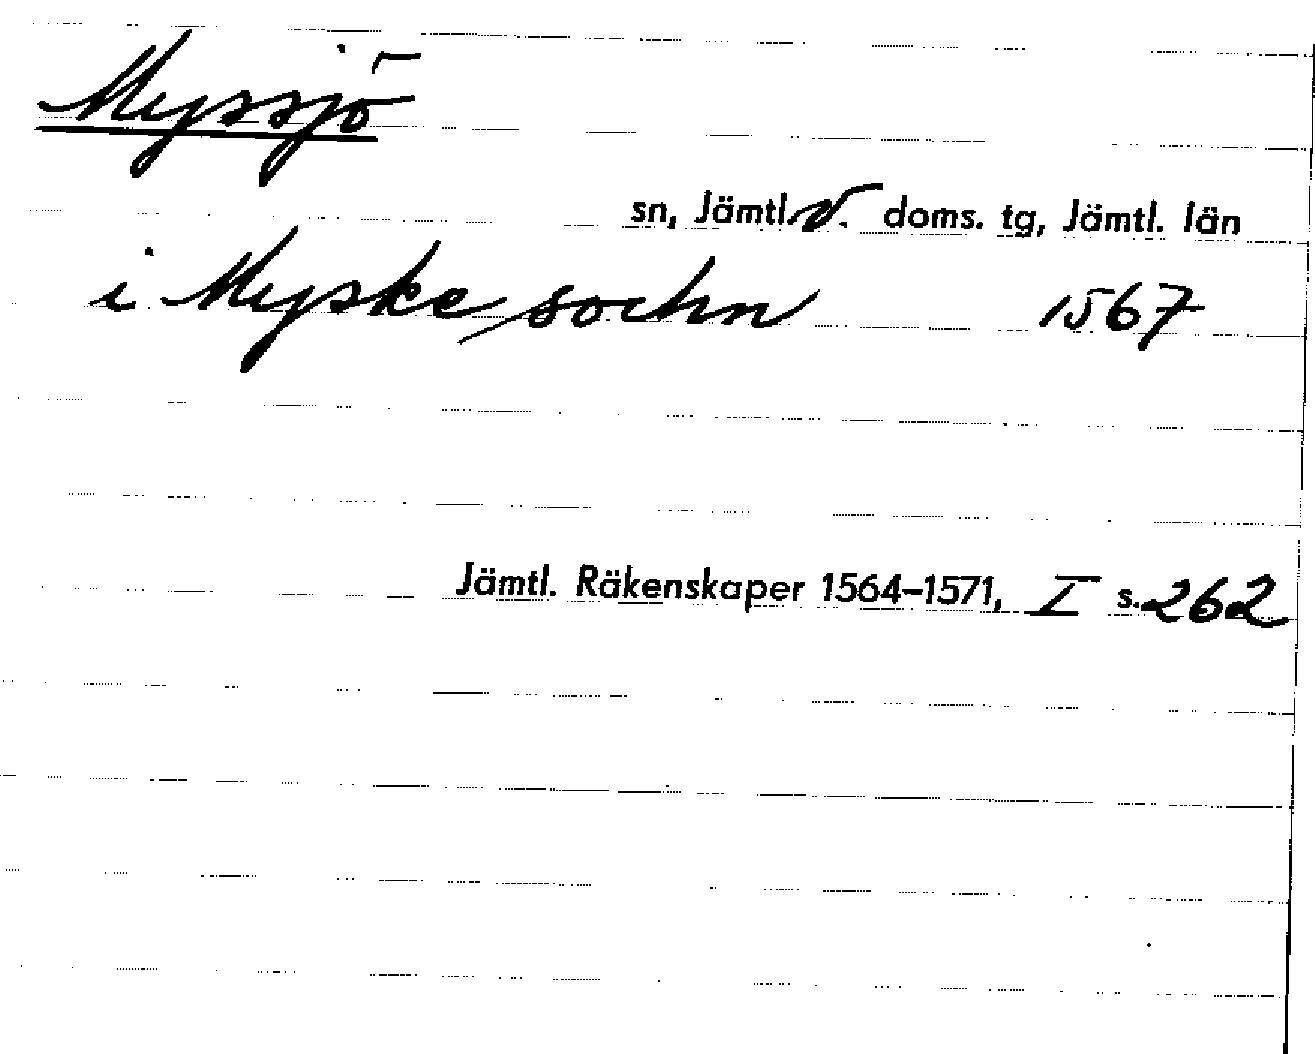 Myssjö
sn, Jämtl. v. doms. tg, Jämtl. län
i Myske sochn 1567
Jämtl. Räkenskaper 1564–1571, I s. 262